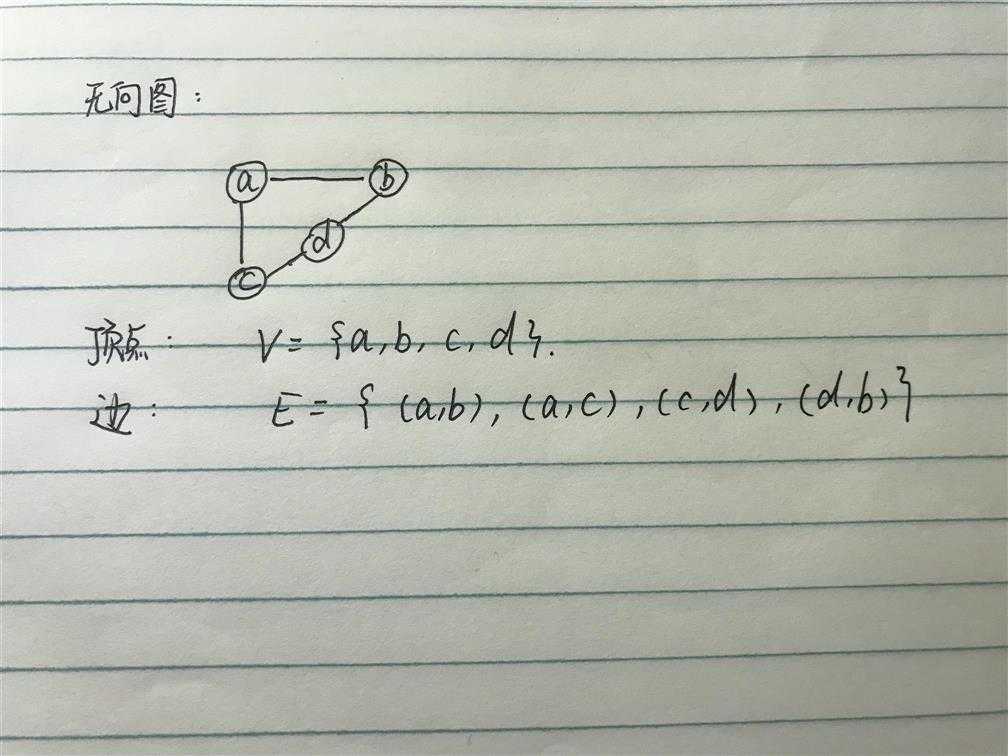 无向图:
a b
d
c
顶点: V = {a, b, c, d}.
边: E = { (a,b), (a,c), (c,d), (d,b) }